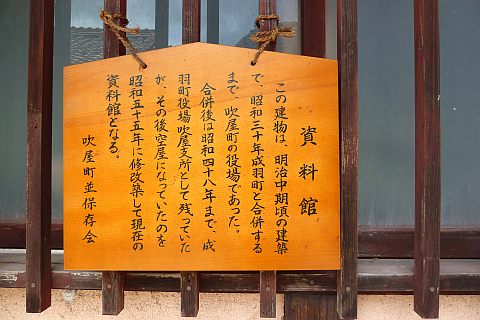 資料館
この建物は、明治中期頃の建築
で、昭和三十年成羽町と合併する
まで、吹屋町の役場であった。
合併後は昭和四十八年まで、成
羽町役場吹屋支所として残っていた
が、その後空屋になっていたのを
昭和五十五年に修改築して現在の
資料館となる。
吹屋町並保存会